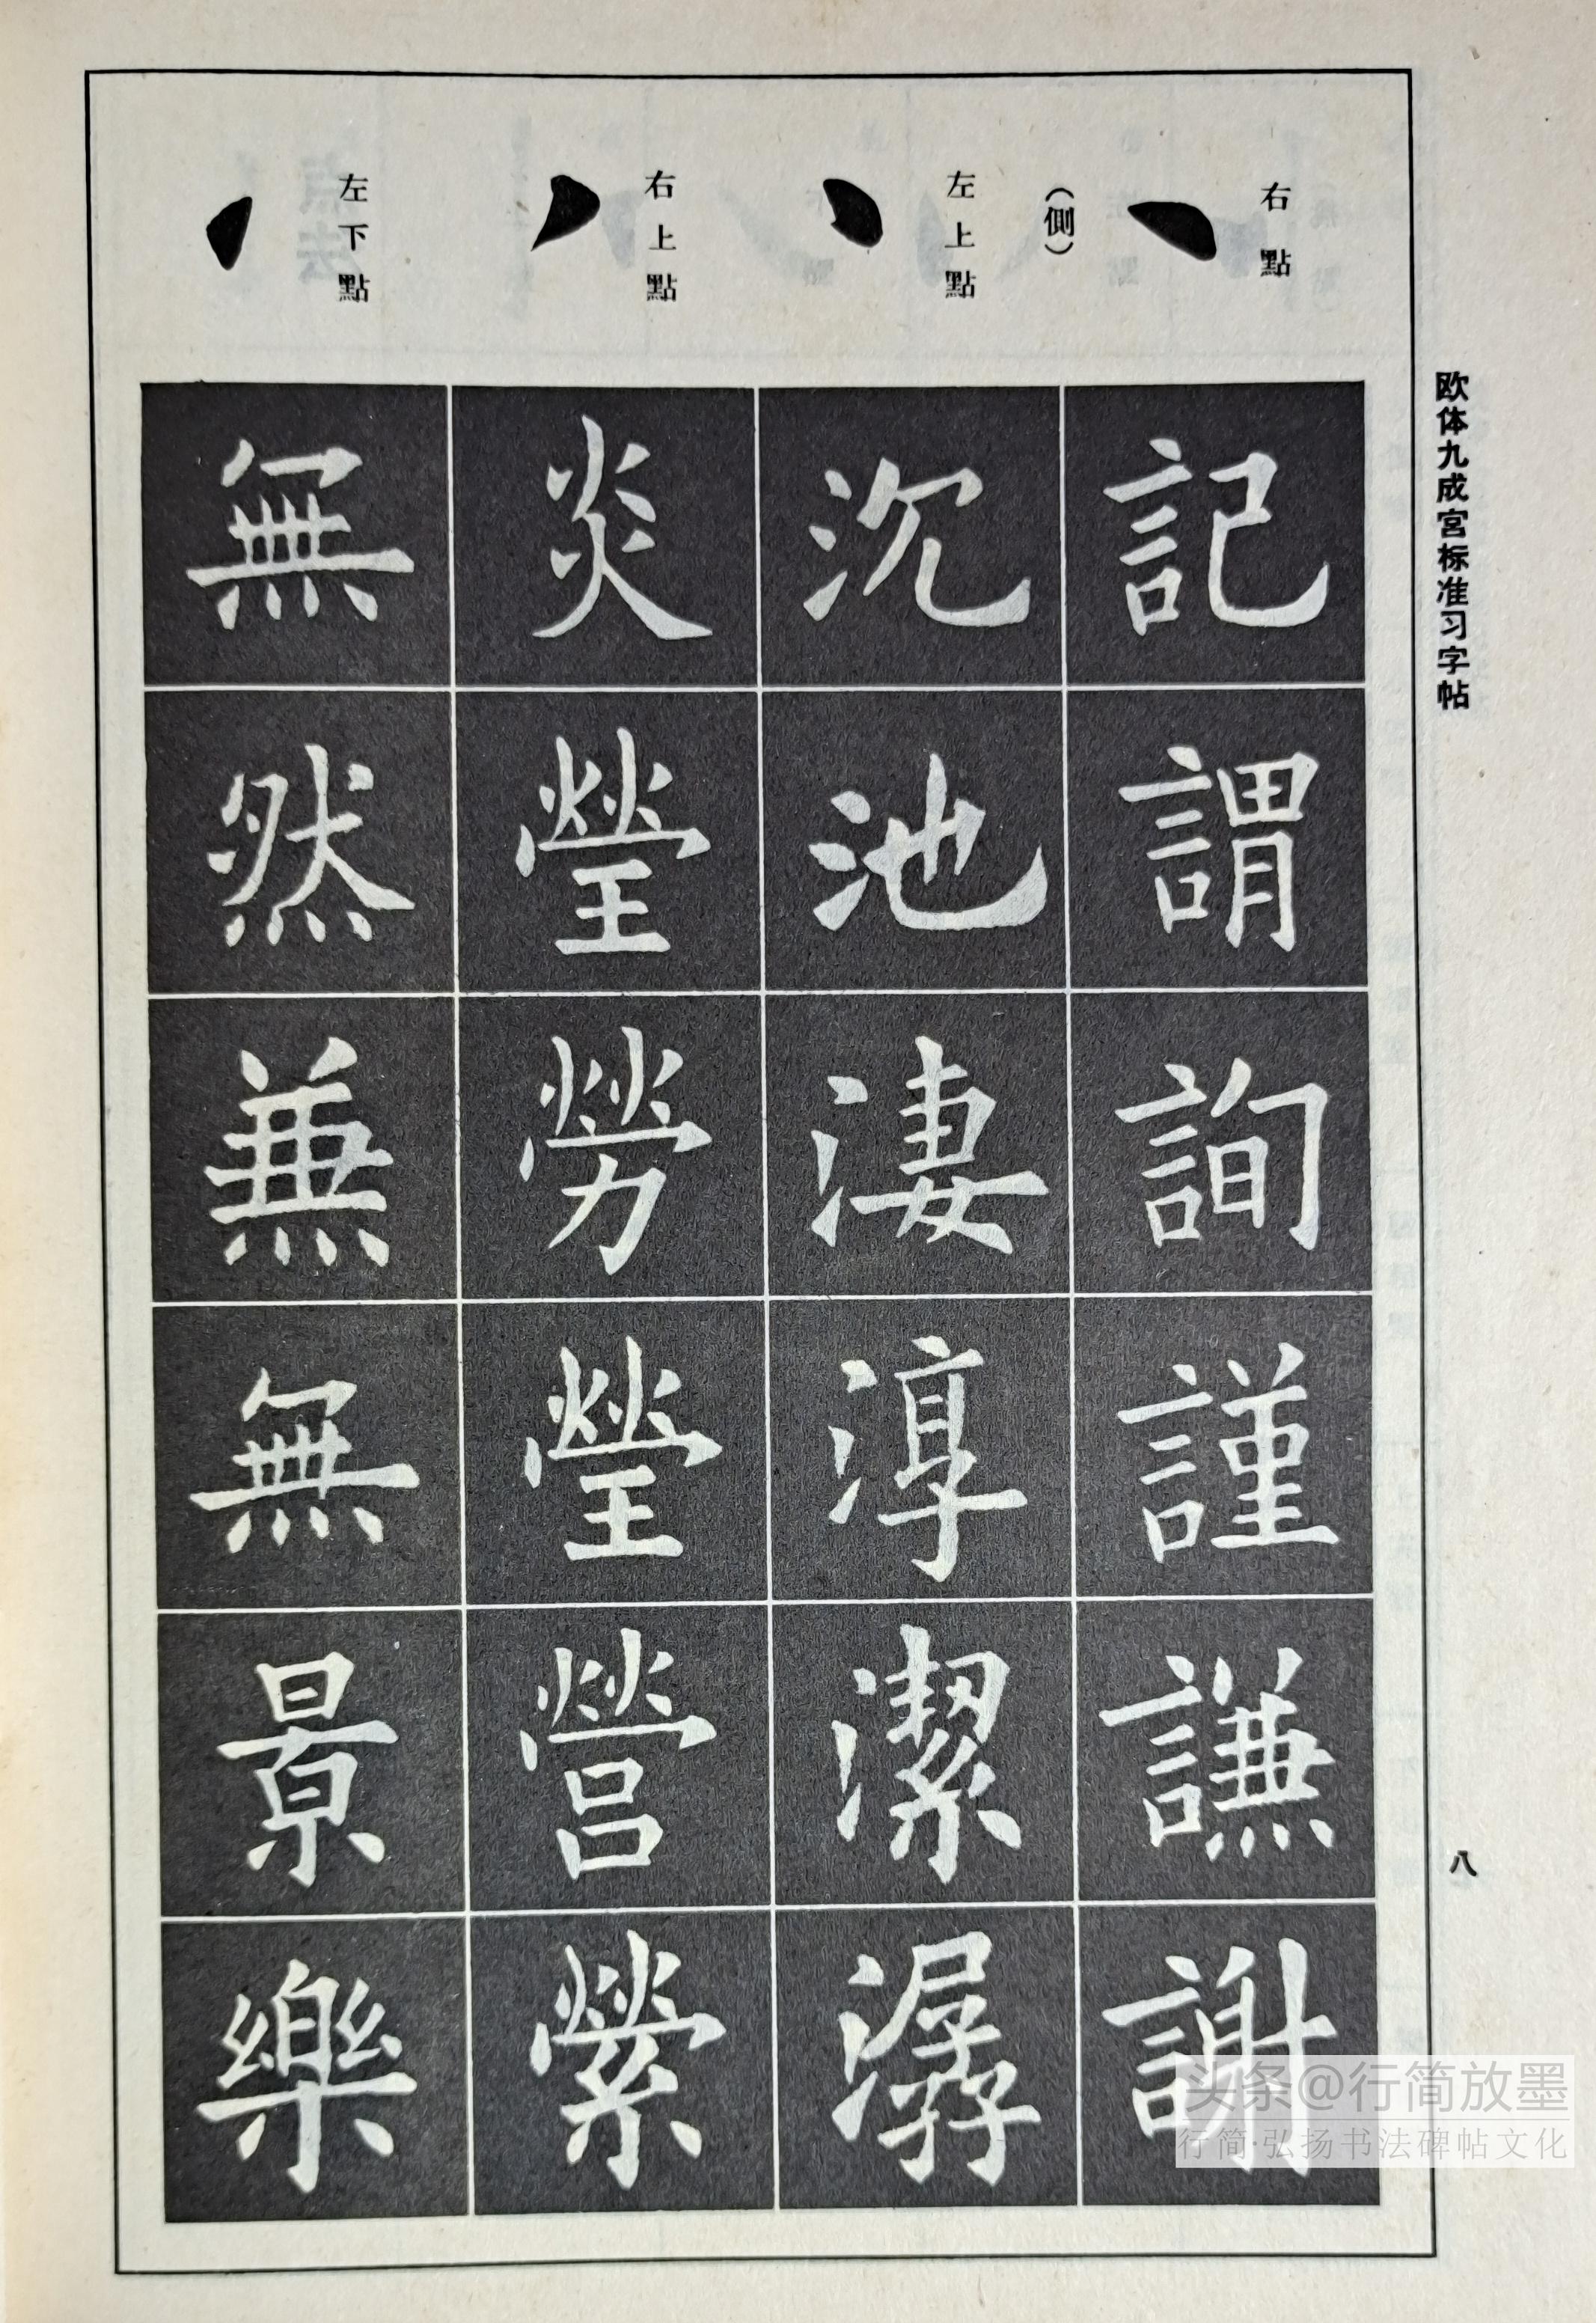 欧体九成宮标准习字帖
八
右點
（側）
左上點
右上點
左下點
記謂詢謹謙謝
沉池淒淳潔潺
炎瑩勞瑩營縈
無然兼無景樂
头条@行简放墨
行简·弘扬书法碑帖文化